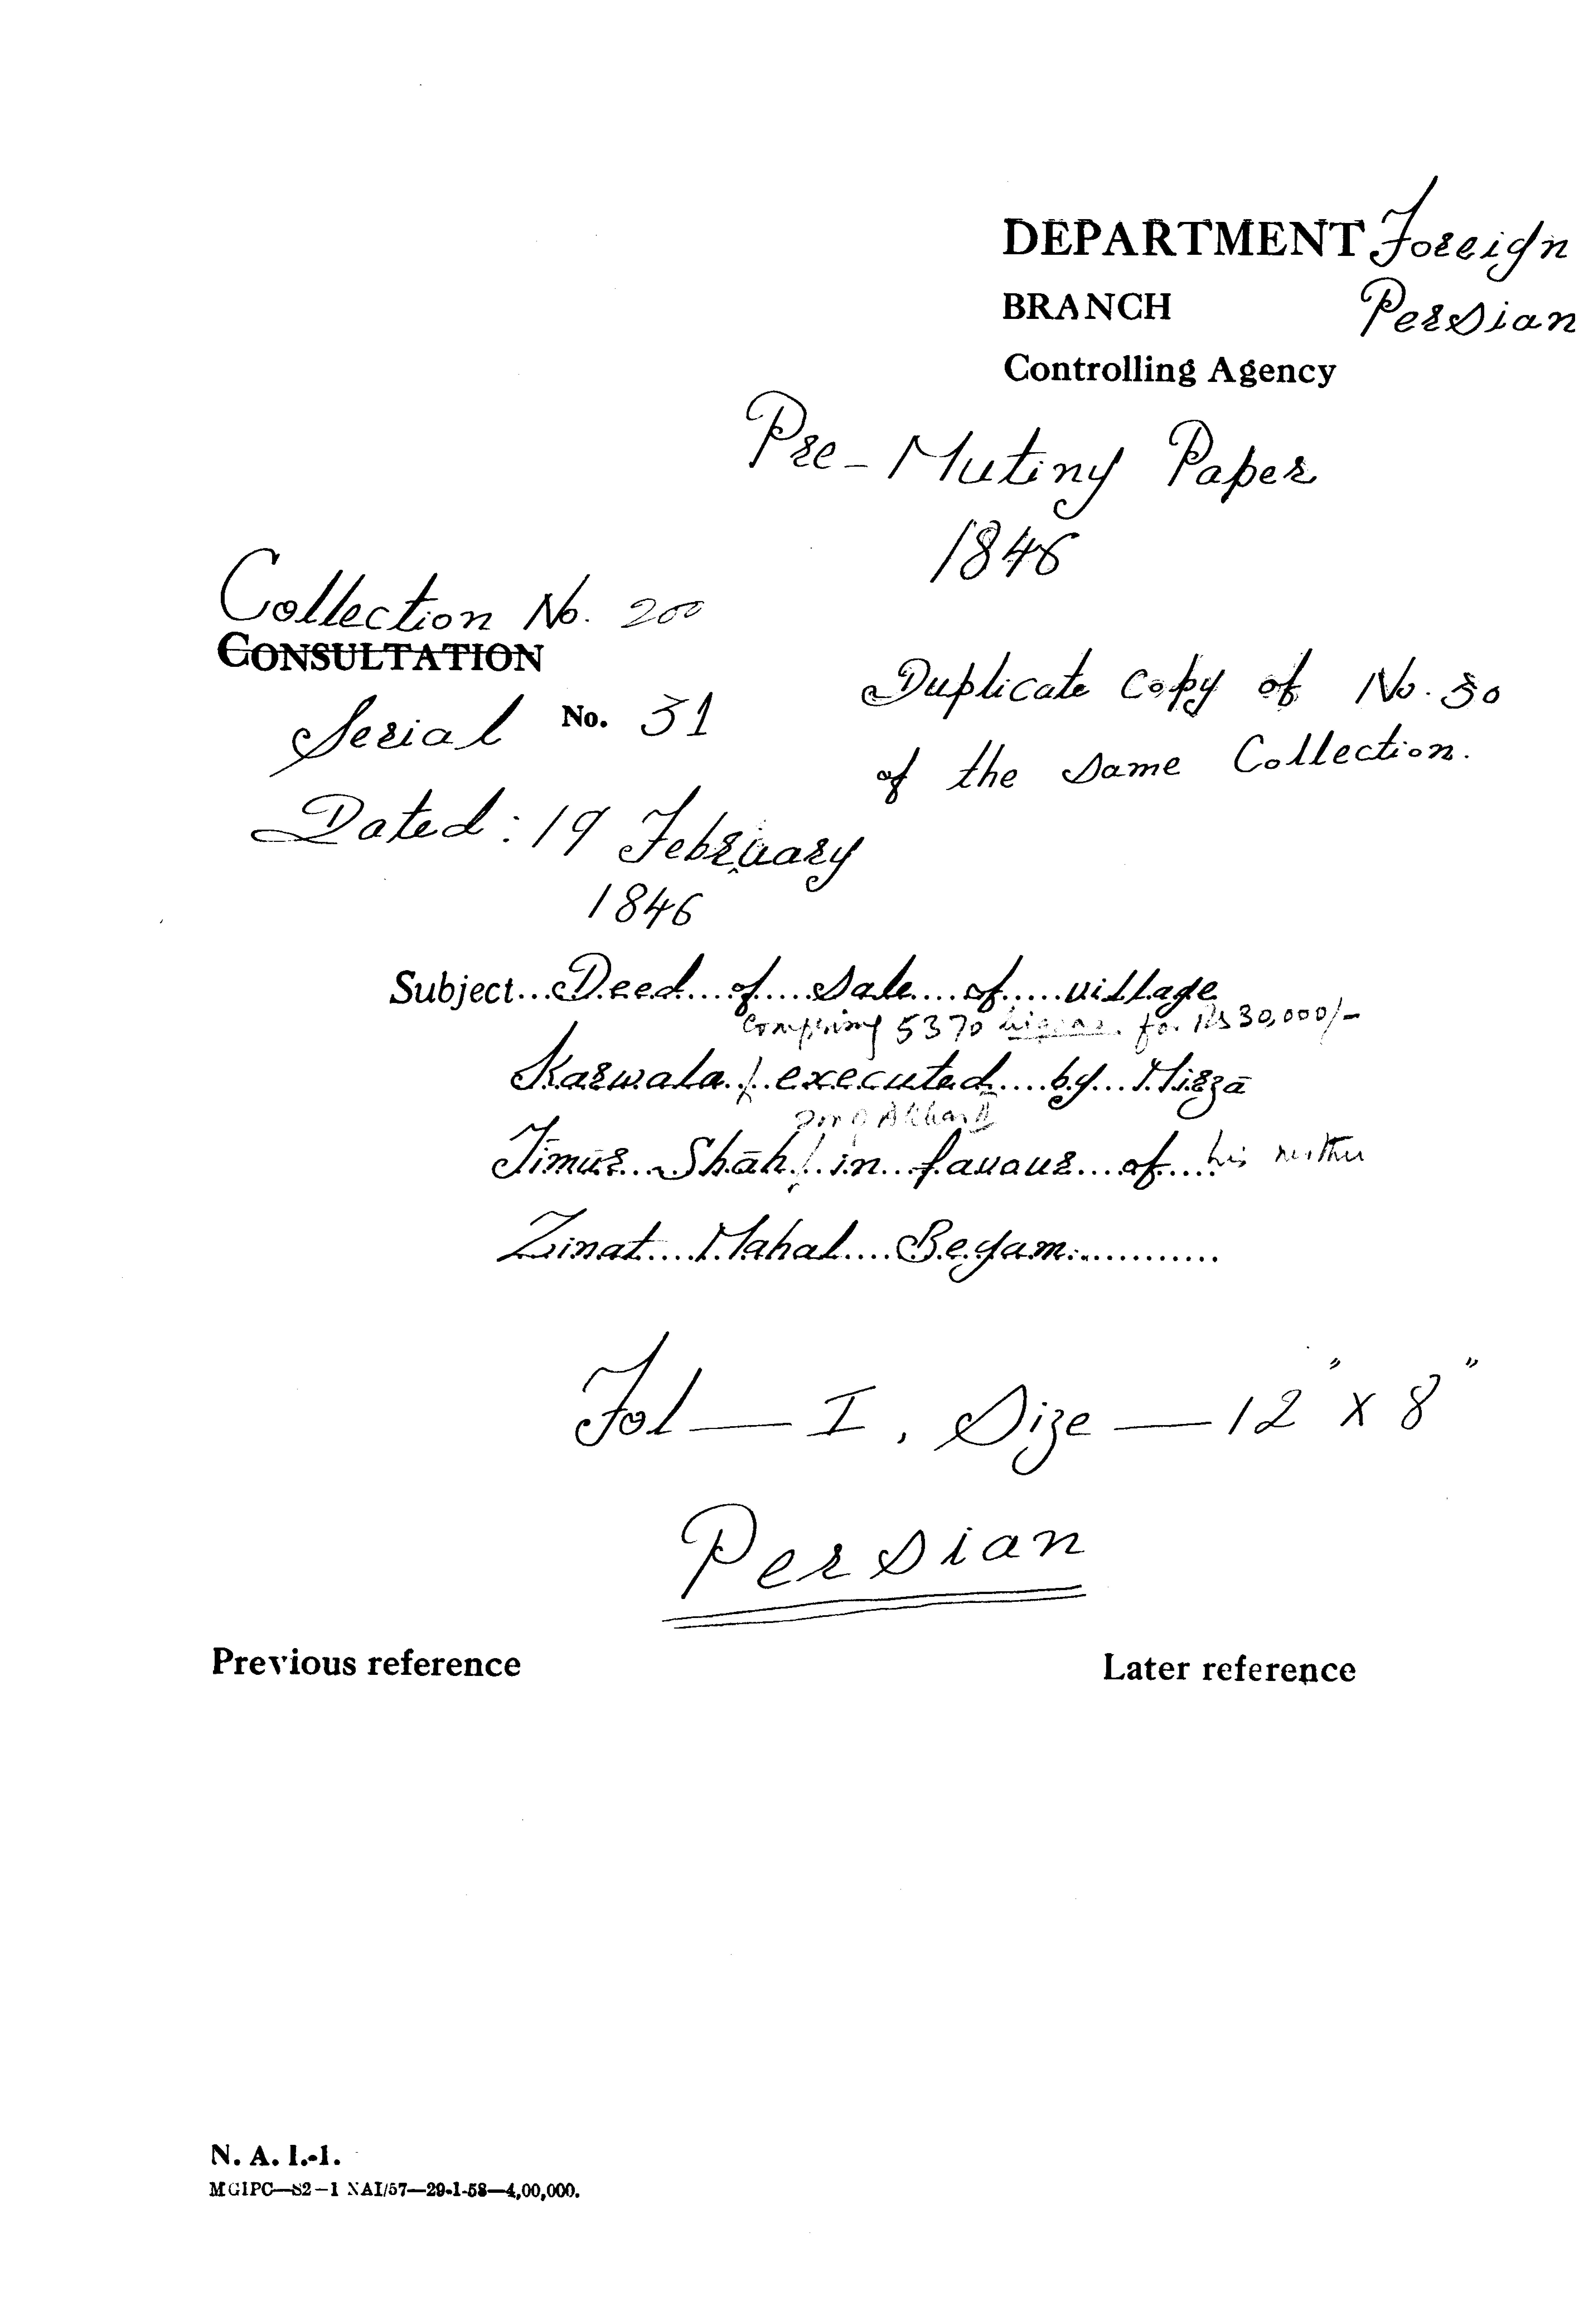 DEPARTMENT Foreign
BRANCH Persian
Controlling Agency
Pre-Mutiny Paper
1846
Collection No. 200
CONSULTATION
Serial No. 31
Duplicate copy of No. 30
of the same Collection.
Dated: 19 February
1846
Subject...Deed of sale of village
comprising 5370 bigas for Rs 30,000/-
Karwala / executed by Mirzā
son of Akbar II
Timūr Shāh / in favour of his mother
Zinat Mahal Begam
Fol — I, Size — 12" x 8"
Persian
Previous reference
Later reference
N. A. I.-1.
MGIPC—S2—1 NAI/57—29-1-58—4,00,000.